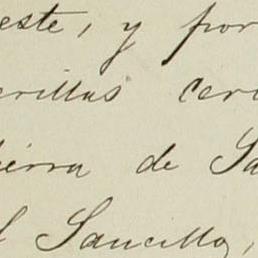 este, y por
erillas cer
ierra de Sa
l Saucillo,